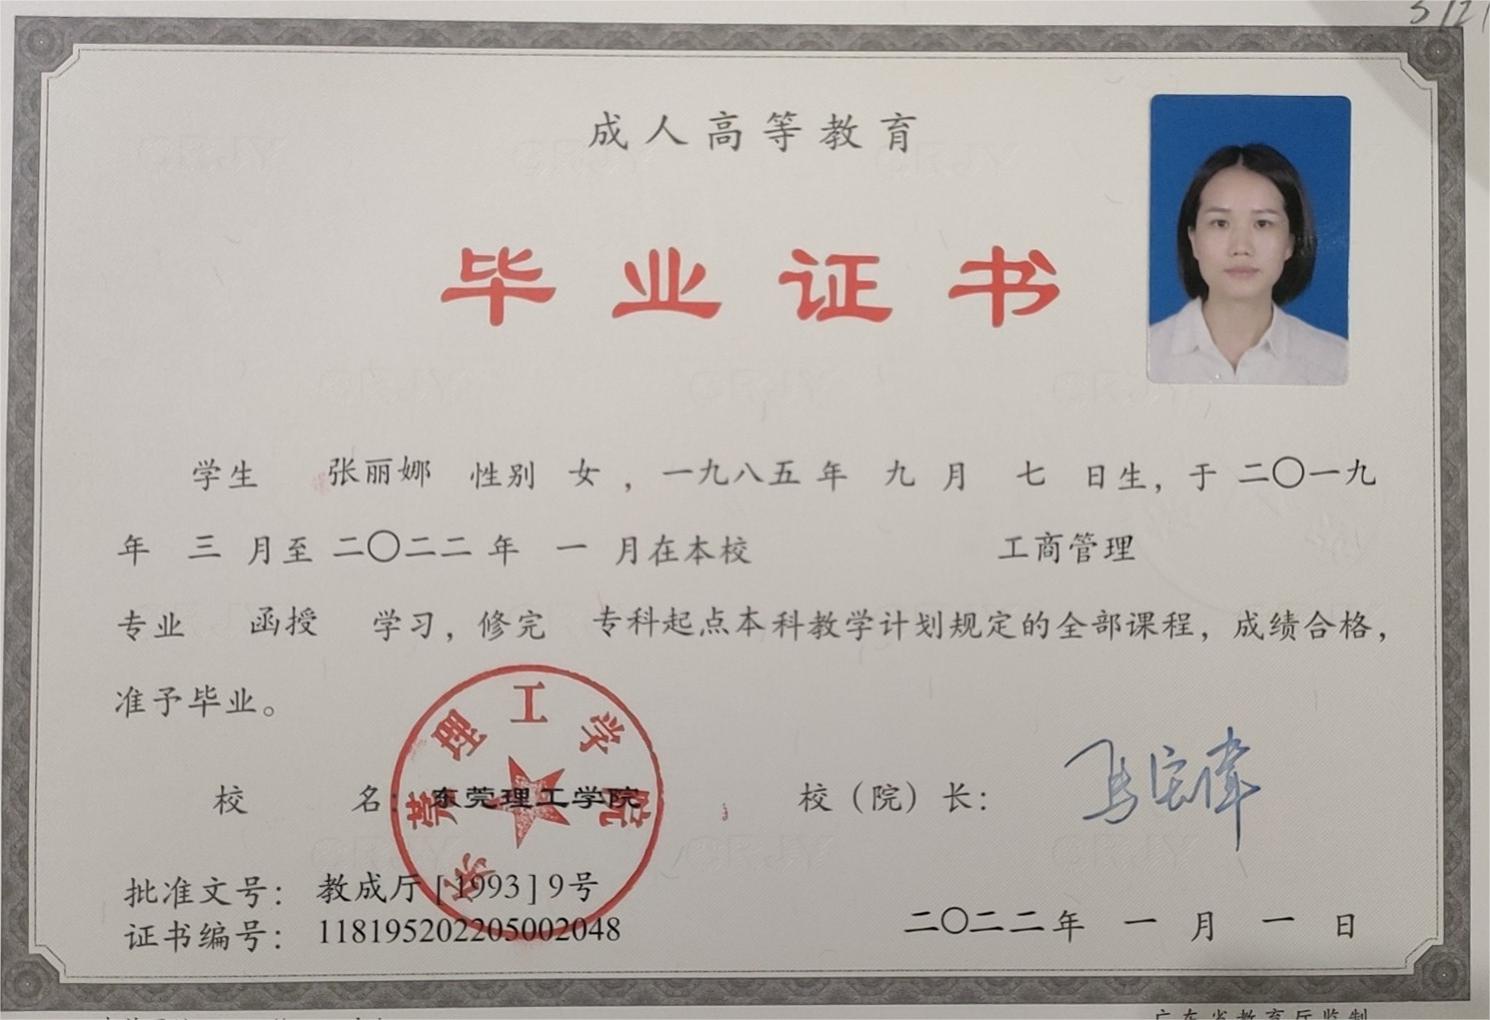 成人高等教育
毕业证书
学生 张丽娜 性别 女 ，一九八五 年 九 月 七 日生，于 二〇一九
年 三 月至 二〇二二 年 一 月在本校 工商管理
专业 函授 学习，修完 专科起点本科教学计划规定的全部课程，成绩合格，
准予毕业。
东莞理工学院
校 名：东莞理工学院 校（院）长： 马宏伟
批准文号： 教成厅［1993］9号
证书编号： 118195202205002048 二〇二二年 一 月 一 日
广东省教育厅监制